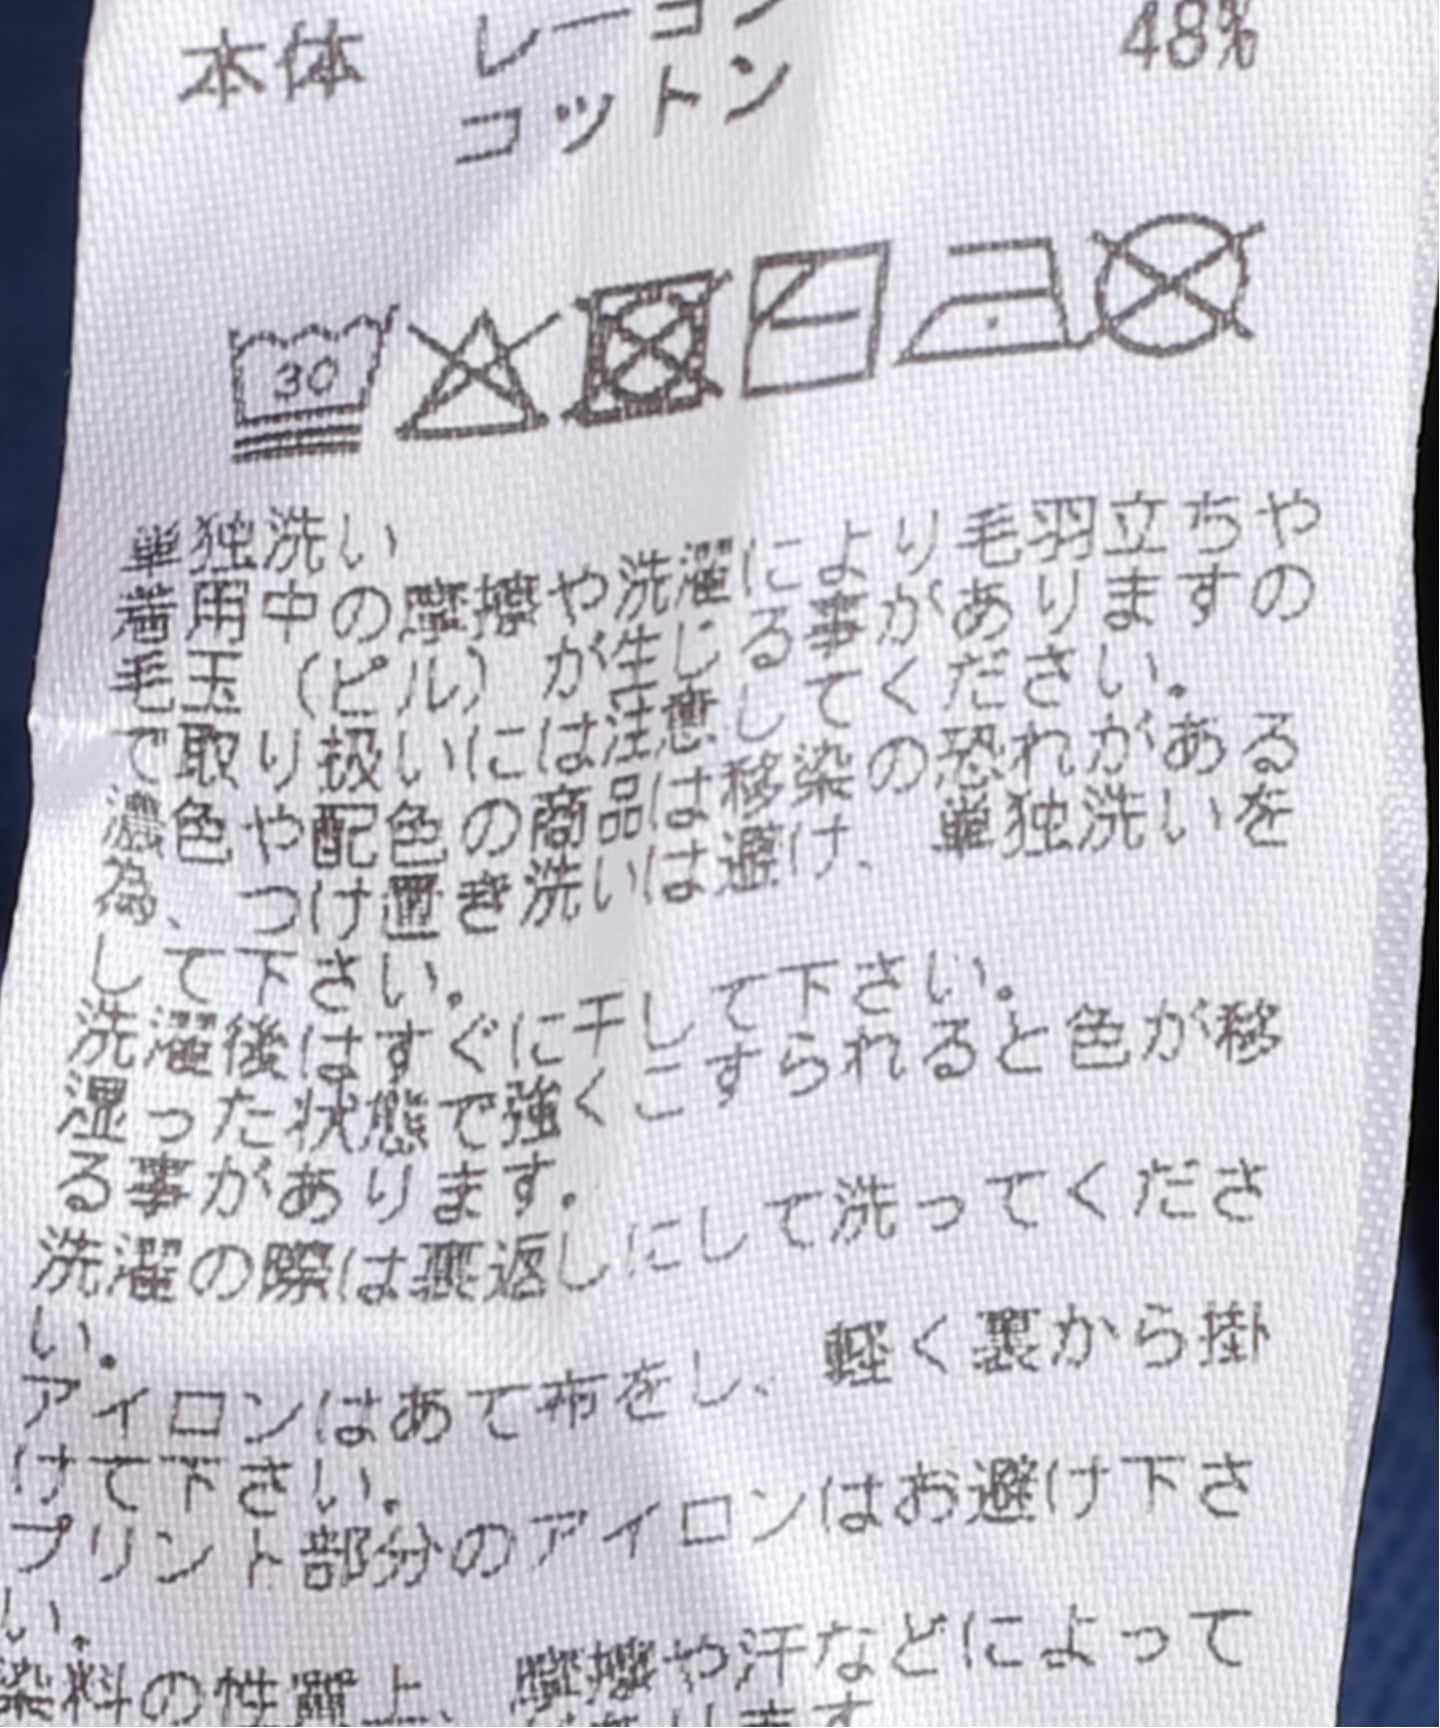 本体 レーヨン
コットン 48%
30
単独洗い
着用中の摩擦や洗濯により毛羽立ちや
毛玉（ピル）が生じる事がありますの
で取り扱いには注意してください。
濃色や配色の商品は移染の恐れがある
為、つけ置き洗いは避け、単独洗いを
して下さい。
洗濯後はすぐに干して下さい。
湿った状態で強くこすられると色が移
る事があります。
洗濯の際は裏返しにして洗ってくださ
い。
アイロンはあて布をし、軽く裏から掛
けて下さい。
プリント部分のアイロンはお避け下さ
い。
染料の性質上、摩擦や汗などによって
あります